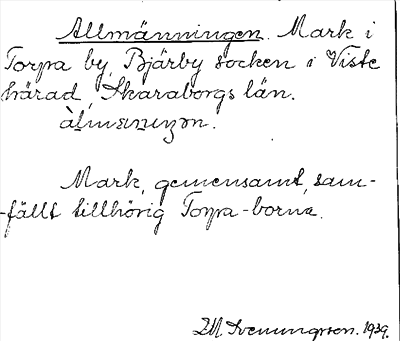 Allmänningen. Mark i
Torpa by, Bjärby socken i Viste
härad, Skaraborgs län.
àlmenuŋən.
Mark, gemensamt, sam-
-fällt tillhörig Torpa-borna.
Svenungsson. 1939.